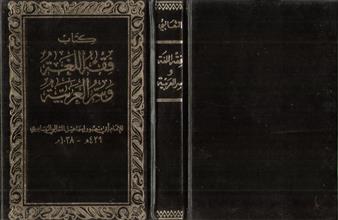 كتاب
فقه اللغة
وسر العربية
للإمام أبي منصور إسماعيل الثعالبي النيسابوري
٤٢٩هـ - ١٠٣٨م
الثعالبي
فقه اللغة
و
سر العربية